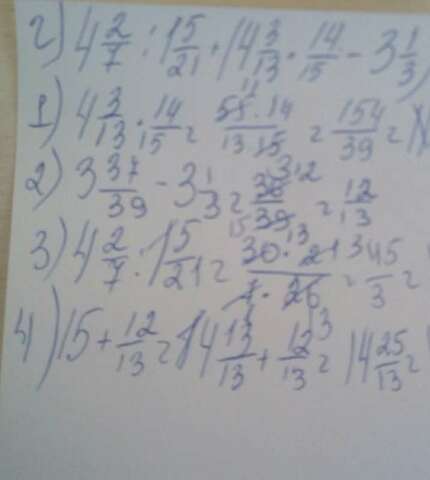 г) 4 2/7 : 1 5/21 + (4 3/13 · 14/15 - 3 1/3)
1) 4 3/13 · 14/15 = 55·14/13·15 = 154/39 =
2) 3 37/39 - 3 1/3 = 36/39 = 12/13
3) 4 2/7 : 1 5/21 = 30·21/7·26 = 45/3 =
4) 15 + 12/13 = 14 13/13 + 12/13 = 14 25/13 =